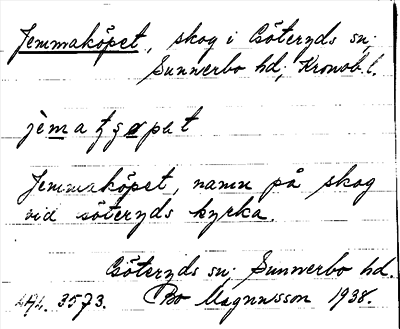 Jemmaköpet, skog i Göteryds sn;
Sunnerbo hd; Kronob. l.
Jemmaköpet, namn på skog
vid Göteryds kyrka.
Göteryds sn; Sunnerbo hd.
3573. Bo Magnusson 1938.